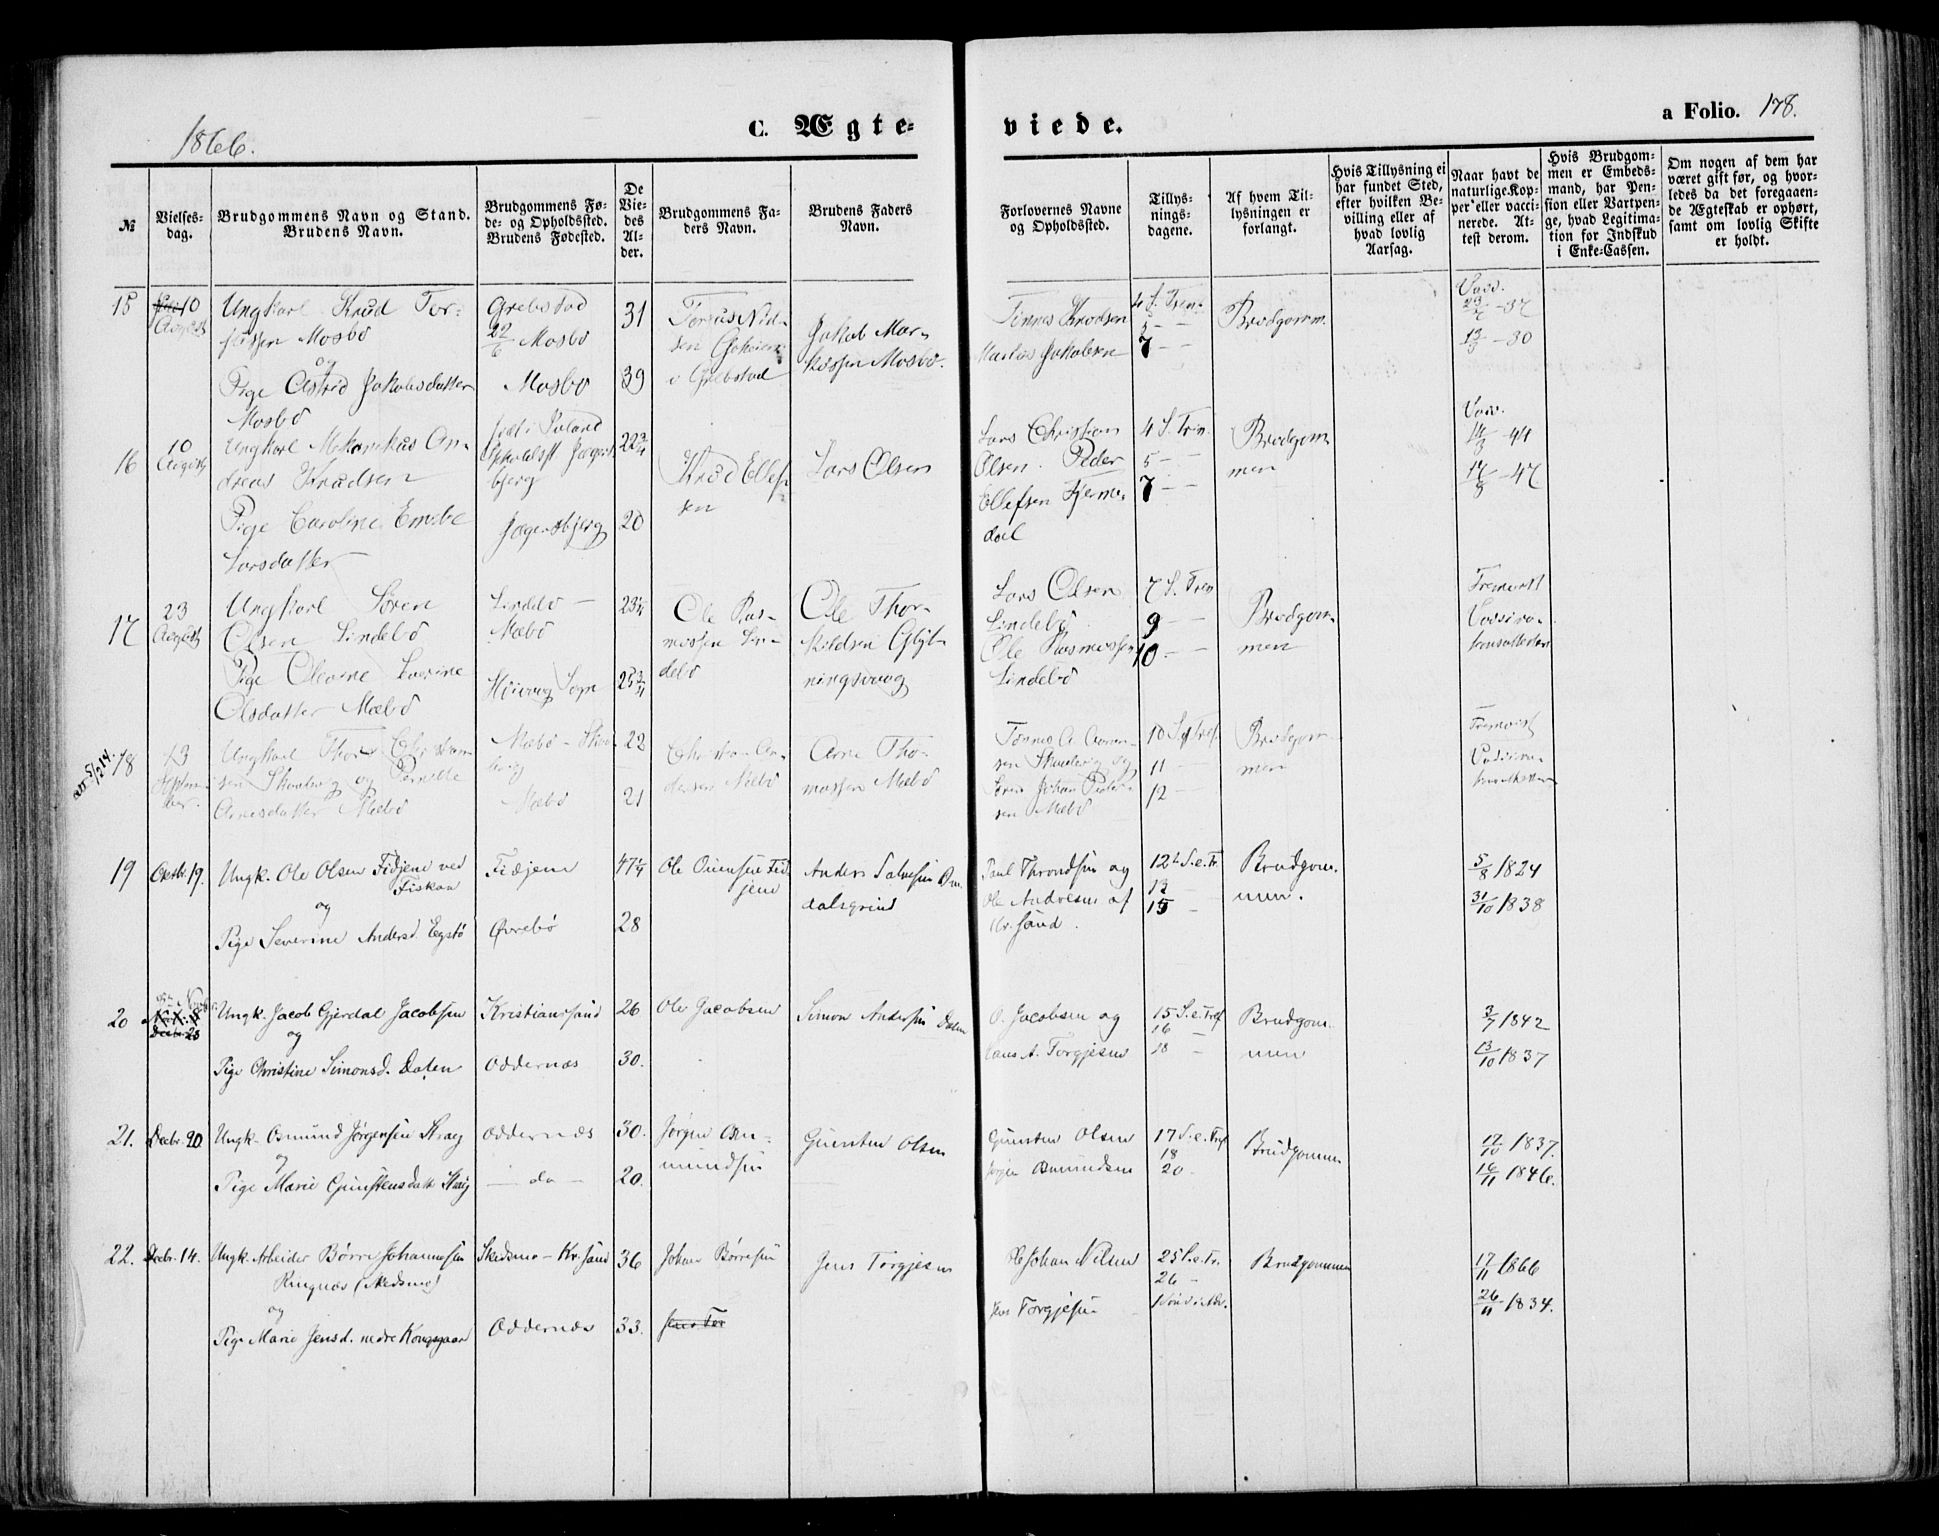 1866.
C. Ægte-
viede.
a Folio. 178.
№
Vielses-
dag.
Brudgommens Navn og Stand.
Brudens Navn.
Brudgommens Fø-
de- og Opholdssted.
Brudens Fødested.
De
Vie-
des
Al-
der.
Brudgommens Fa-
ders Navn.
Brudens Faders
Navn.
Forlovernes Navne
og Opholdssted.
Tillys-
nings-
dagene.
Af hvem Til-
lysningen er
forlangt.
Hvis Tillysning ei
har fundet Sted,
efter hvilken Be-
villing eller af
hvad lovlig
Aarsag.
Naar havt de
naturlige Kop-
per eller vacci-
nerede. At-
test derom.
Hvis Brudgom-
men er Embeds-
mand, har Pen-
sion eller Vartpen-
ge, hvad Legitima-
tion for Indskud
i Enke-Cassen.
Om nogen af dem har
været gift før, og hvor-
ledes da det foregaaen-
de Ægteskab er ophørt,
samt om lovlig Skifte
er holdt.
15
10
August
Ungkarl Knud Tor-
jussen Mosbø
og
Pige Astrid Jakobsdatter
Mosbø
Grebstad
22/6 Mosbø
Mosbø
31
39
Torjus Niel-
sen
i Grebstad
Jakob Mar-
kussen Mosbø.
Tønnes Knudsen
Markus Jakobsen
4 S. Trin.
5 - -
7 - -
Brudgomm.
Vacc.
- 37
- 30
16
10
August
Ungkarl Mekanikus An-
dreas Knudsen
Pige Caroline Emilie
Larsdatter
født i
Jægers-
bjerg
Jægersbjerg
22 3/4
20
Knud Ellef-
sen
Lars Olsen
Lars Christian
Olsen. Peder
Ellefsen
dal
4 S. Trin.
5 - -
7 - -
Brudgom-
men
Vacc.
- 44
- 47
17
23
August
Ungkarl Søren
Olsen Lindebø
Pige Olevine Severine
Olsdatter Mæbø
Lindebø -
Mæbø
Høivaag Sogn
23 1/4
25 3/4
Ole Ras-
mussen Lin-
debø
Ole Thor-
kildsen Glyt-
ningsvaag
Lars Olsen
Lindebø
Ole Rasmussen
Lindebø
7 S. Trin
9 - -
10 - -
Brudgom-
men
Fremvist
Vaccina-
tionsattester
18
13
Septem-
ber.
Ungkarl Thor Christian-
sen Skudvig og Pernille
Arnesdatter Mæbø
Mæbø - Skud-
vig
Mæbø
22
21
Christian An-
dersen Mæbø
Arne Tho-
massen Mæbø
Tønnes A.
sen Skudvig og
Søren Johan Peder-
sen Mæbø
10 S. e. Tref.
11 -
12 -
Brudgom-
men
Fremvist
Vaccina-
tionsattester
19
Oktbr. 19.
Ungk. Ole Olsen Fidjene ved
Fiskaa
og
Pige Severine Andersd. Egstø
Fidjene
Øvrebø
47 1/4
28
Ole Ouensen Fid-
jene
Anders Salvesen Om-
dalsgrind
Paul Throndsen og
Ole Andresen af
Kr.sand.
12te S. e. Tr.
13
15 -
Brudgom-
men.
5/8 1824
31/10 1838
20
Ungk. Jacob Gjerdal Jacobsen
og
Pige Christine Simonsd. Dalen
Kristianssand
Oddernæs
26
30.
Ole Jacobsen
Simon Andersen Dalen
O. Jacobsen og
Hans A. Torgjesen
15 S. e. Tref
16 -
18 -
Brudgom-
men
3/7 1842
13/10 1837
21.
Decbr. 20
Ungk. Osmund Jørgensen Straj
og
Pige Marie Gunstensdatt. Straj
Oddernæs
- do -
30.
20.
Jørgen Os-
mundsen
Gunsten Olsen
Gunsten Olsen
Jørgen Osmundsen
17 S. e. Tref
18
20 -
Brudgommen
17/10 1837.
16/11 1846.
22.
Decbr. 14.
Ungk. Arbeider Børre Johannesen
Ringnæs (Skedsmo)
og
Pige Marie Jensd. nedre Kongsgaard
Skedsmo - Kr.sand
Oddernæs
36
33.
Johan Børresen
Jens Tor
Jens Torgjesen
Johan Nilsen
Jens Torgjesen
25 S. e. Tr.
26 -
1 Sønd i Adv.
Brudgommen
17/11 1866
26/11 1834.